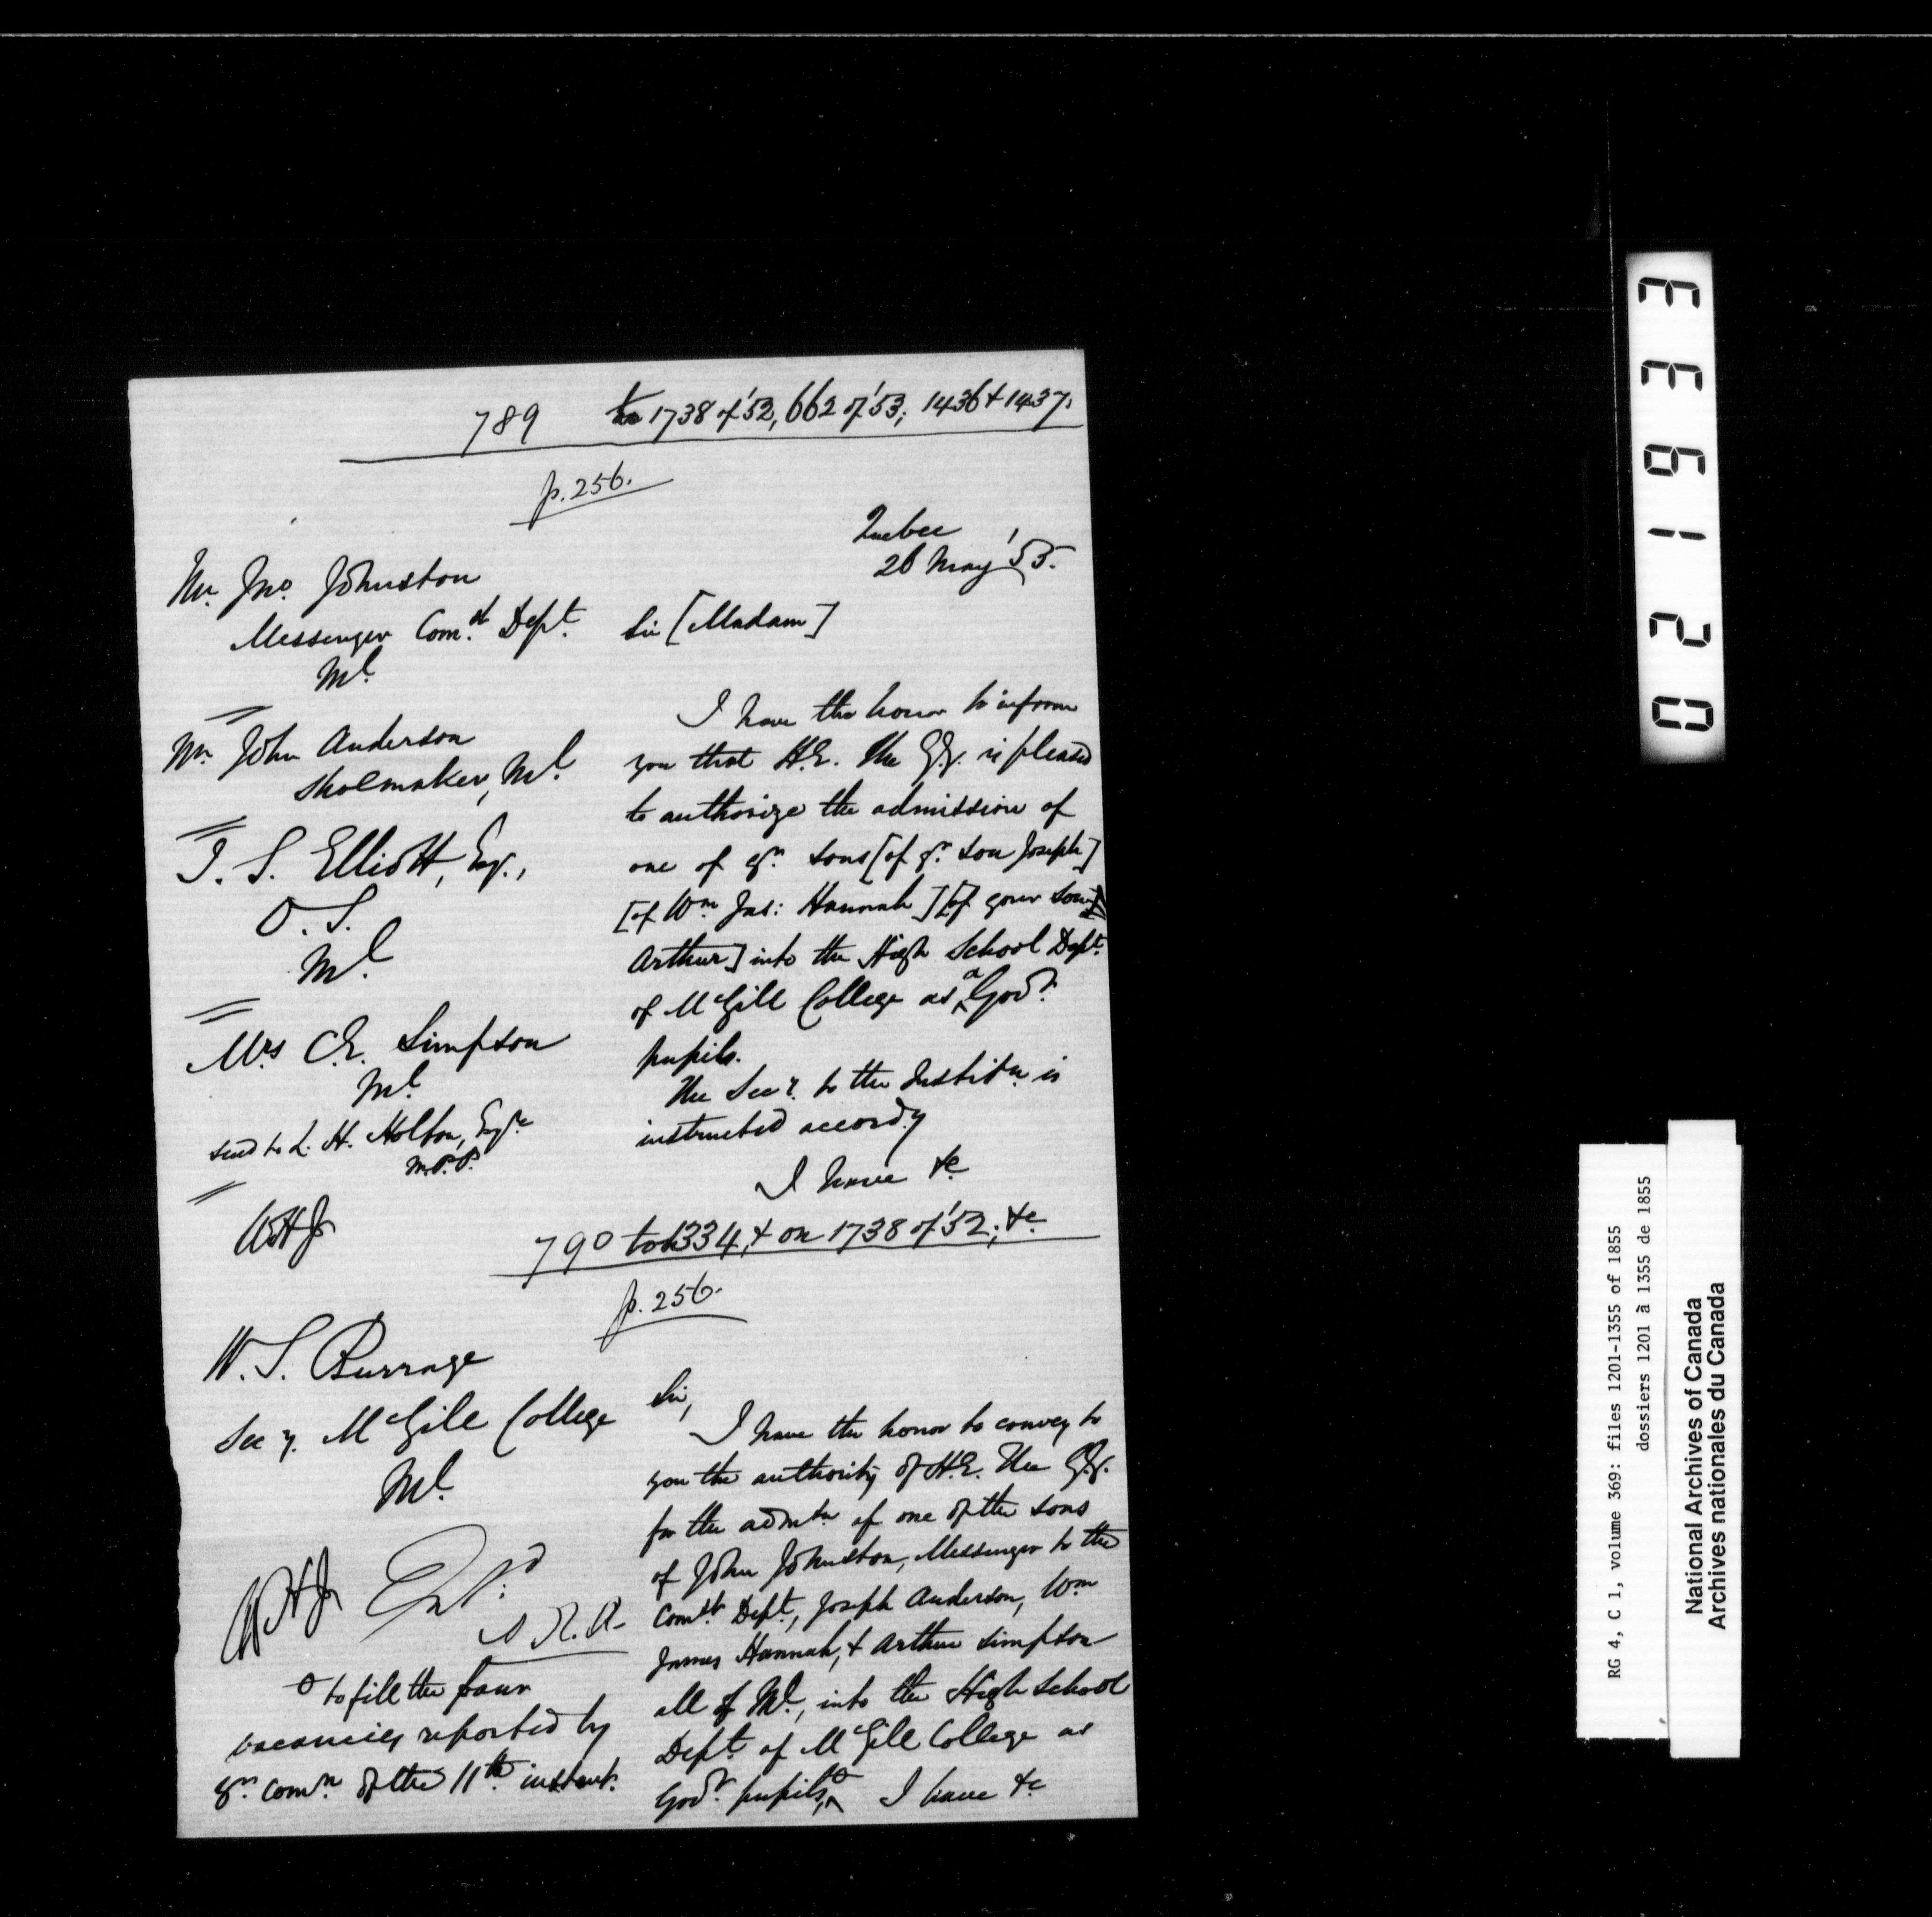 789 to 1738 of '52, 662 of '53; 1436 & 1437.
p. 256.
Quebec
26 May '55.
Mr. Jno. Johnston
Messenger Com.t Dept.
Ml.
Mr. John Anderson
Shoemaker, Ml.
J. S. Elliott, Esq.,
O. S.
Ml.
Mrs C. E. Simpson
Ml.
send to L. H. Holton, Esqre
M.P.P.
Sir [Madam]
I have the honor to inform
you that H.E. the G.G. is pleased
to authorize the admission of
one of yr. sons [of yr. son Joseph]
[of Wm Jas: Hannah] [of your son
Arthur] into the High School Dept.
of McGill College as a Govt.
pupils.
The Secy. to the Institn. is
instructed accordy
I have &c
790 to 1334, & on 1738 of '52; &c
p. 256.
W. S. Burrage
Secy. McGill College
Ml.
Sir,
I have the honor to convey to
you the authority of H.E. The G.G.
for the admtn of one of the sons
of John Johnston, Messenger to the
Comt. Dept., Joseph Anderson, Wm
James Hannah, & Arthur Simpson
all of Ml., into the High School
Dept. of McGill College as
Govt. pupils, I have &c
o to fill the four
vacancies reported by
yr. comn. of the 11th instant.
02193E
RG 4, C 1, volume 369: files 1201-1355 of 1855
dossiers 1201 à 1355 de 1855
National Archives of Canada
Archives nationales du Canada